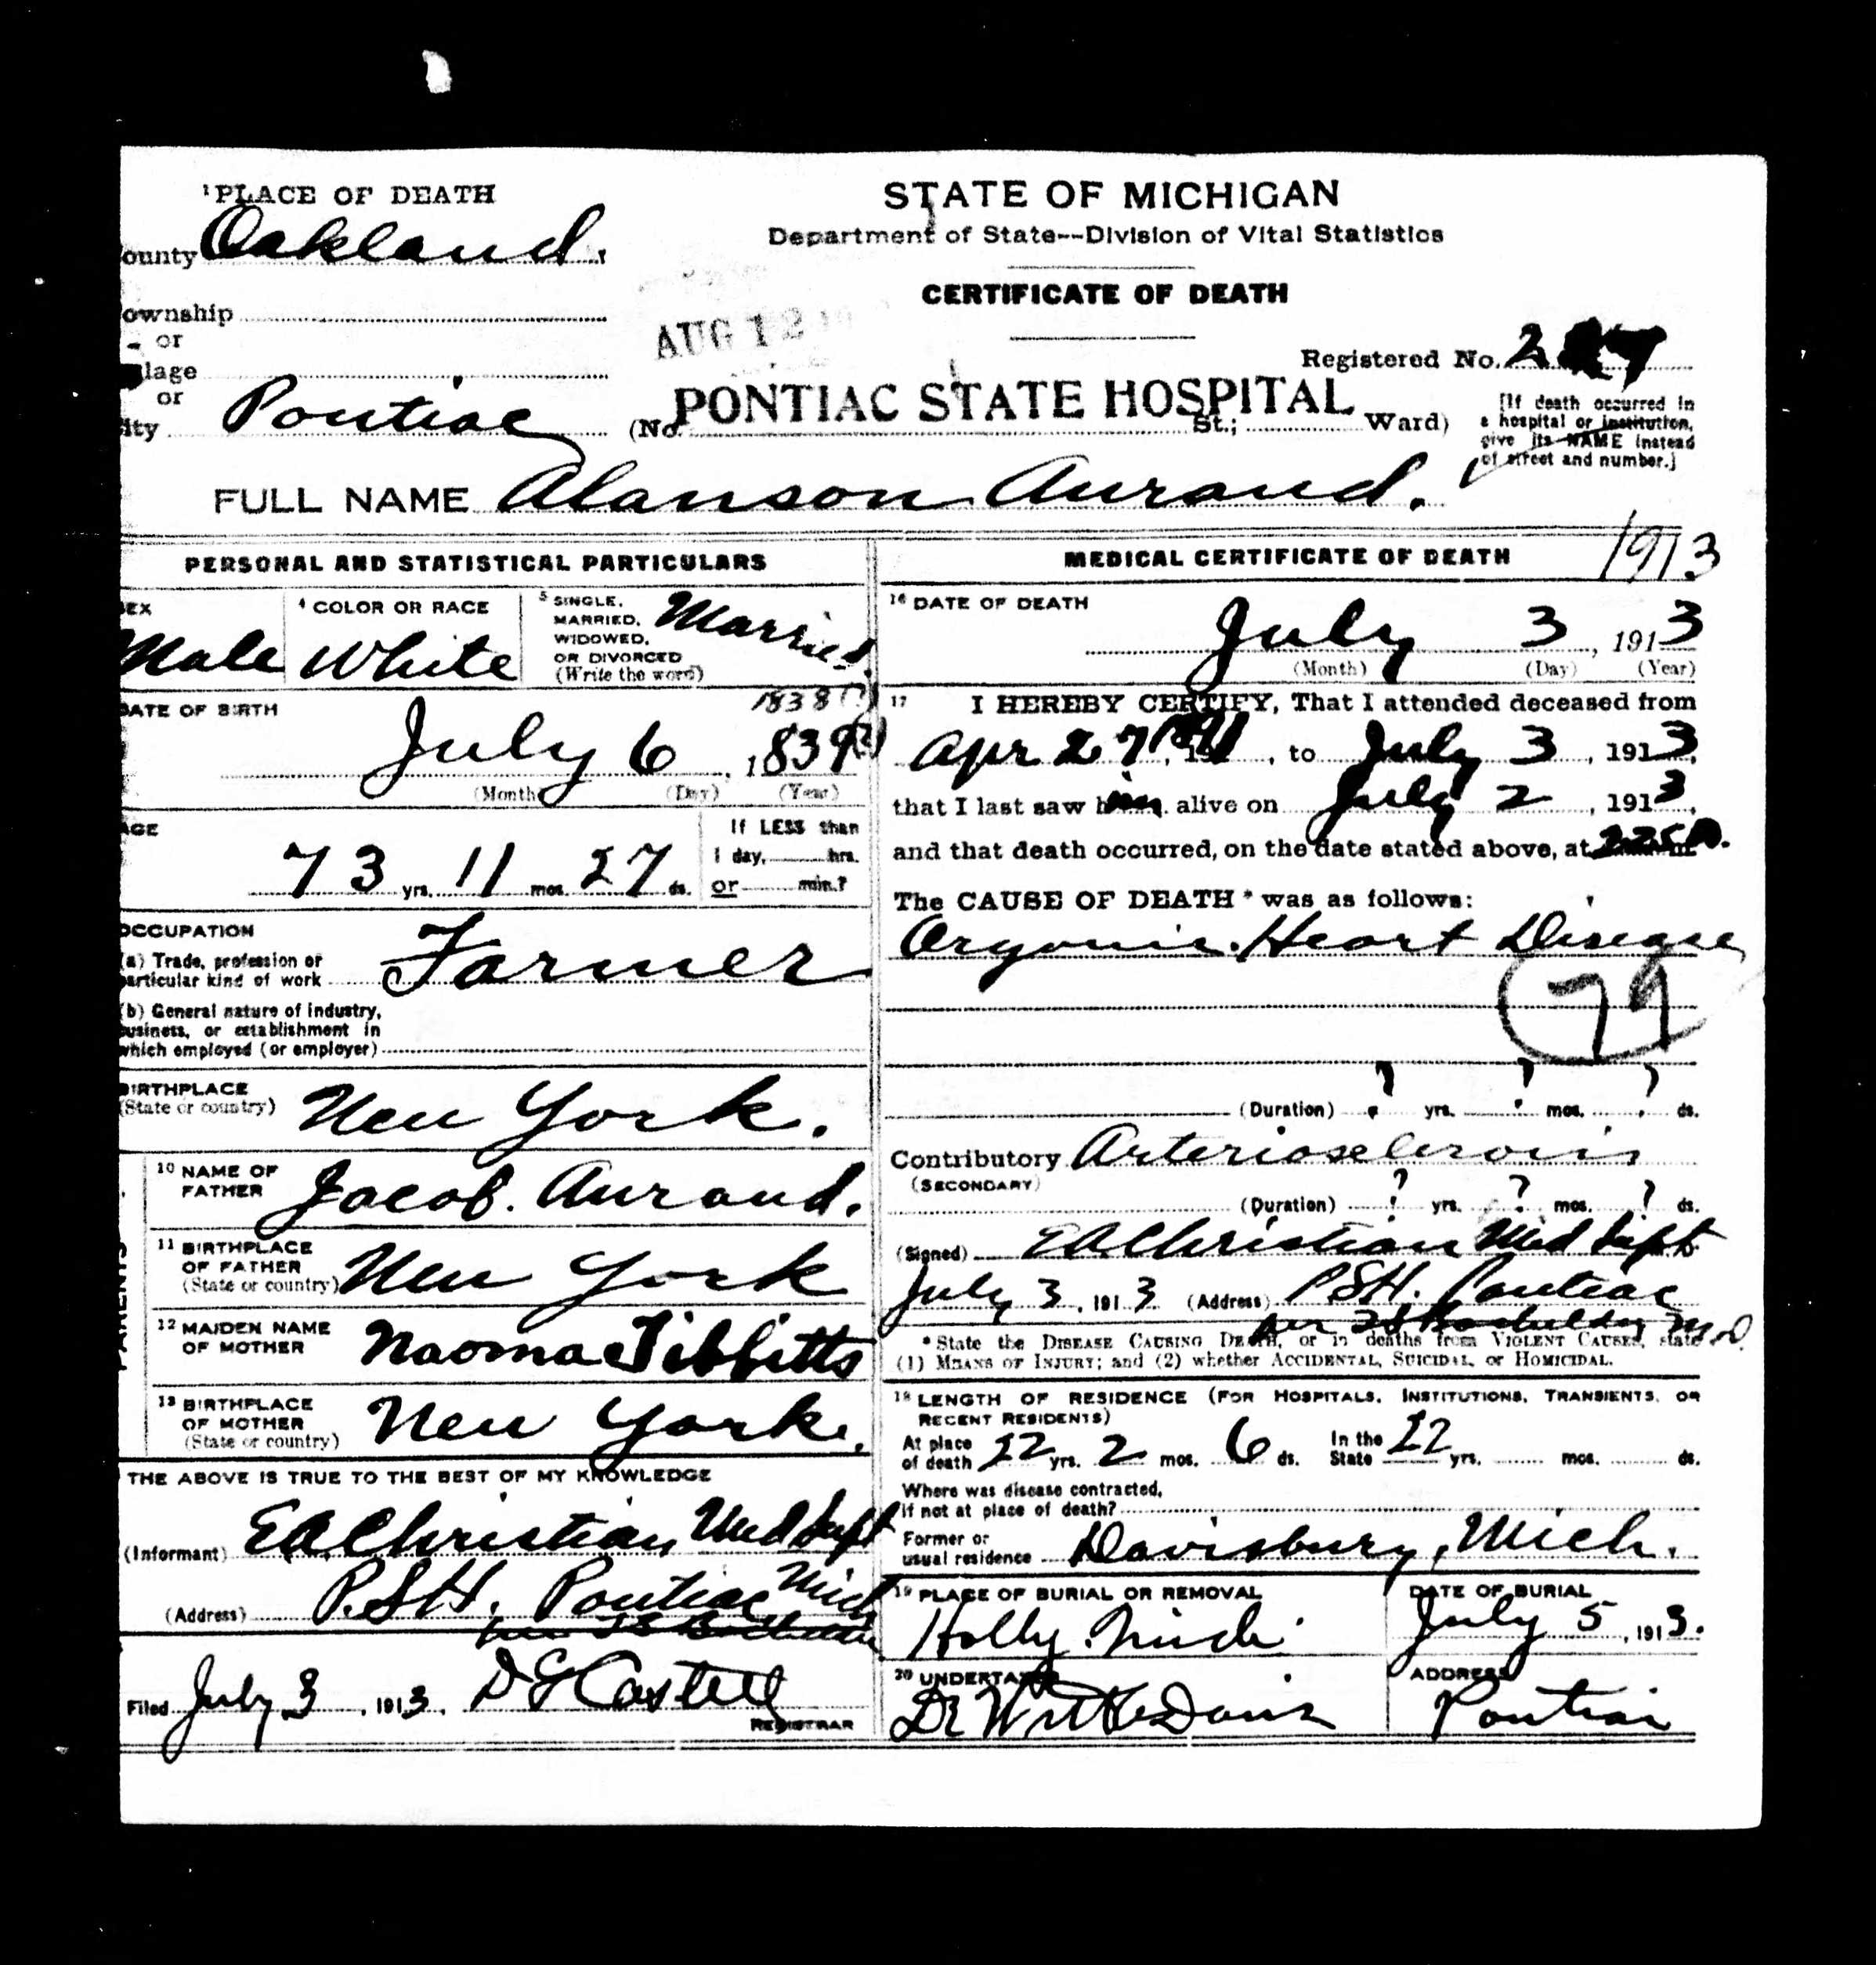 ¹PLACE OF DEATH
ounty Oakland.
ownship
or
lage
or
ity Pontiac
STATE OF MICHIGAN
Department of State--Division of Vital Statistics
CERTIFICATE OF DEATH
AUG 12
Registered No.
(No. PONTIAC STATE HOSPITAL St.; Ward)
[If death occurred in
a hospital or institution,
give its NAME instead
of street and number.]
FULL NAME Alanson Aurand.
PERSONAL AND STATISTICAL PARTICULARS
EX
Male
⁴ COLOR OR RACE
White
⁵ SINGLE,
MARRIED,
WIDOWED,
OR DIVORCED
(Write the word)
Married.
DATE OF BIRTH
1838 (?)
July 6, 1839(?)
(Month) (Day) (Year)
AGE
73 yrs. 11 mos. 27 ds.
If LESS than
1 day, hrs.
or min.?
OCCUPATION
(a) Trade, profession or
particular kind of work Farmer
(b) General nature of industry,
business, or establishment in
which employed (or employer)
BIRTHPLACE
(State or country) New York.
PARENTS
¹⁰ NAME OF
FATHER Jacob. Aurand.
¹¹ BIRTHPLACE
OF FATHER
(State or country) New York
¹² MAIDEN NAME
OF MOTHER Naoma Tibbitts
¹³ BIRTHPLACE
OF MOTHER
(State or country) New York.
THE ABOVE IS TRUE TO THE BEST OF MY KNOWLEDGE
(Informant) EAChristian Med Supt
(Address) P.S.H. Pontiac Mich
Filed July 3, 1913.
REGISTRAR
MEDICAL CERTIFICATE OF DEATH
1913
¹⁶ DATE OF DEATH
July 3, 1913
(Month) (Day) (Year)
¹⁷ I HEREBY CERTIFY, That I attended deceased from
Apr 27, 1891, to July 3, 1913,
that I last saw him alive on July 2, 1913,
and that death occurred, on the date stated above, at
The CAUSE OF DEATH * was as follows:
Organic Heart Disease
79
(Duration) ? yrs. ? mos. ? ds.
Contributory Arteriosclerosis
(SECONDARY)
(Duration) ? yrs. ? mos. ? ds.
(Signed) EAChristian Med Supt
July 3, 1913 (Address) P.S.H. Pontiac
* State the DISEASE CAUSING DEATH, or in deaths from VIOLENT CAUSES, state
(1) MEANS OF INJURY; and (2) whether ACCIDENTAL, SUICIDAL, or HOMICIDAL.
¹⁸ LENGTH OF RESIDENCE (FOR HOSPITALS, INSTITUTIONS, TRANSIENTS, OR
RECENT RESIDENTS)
At place
of death 22 yrs. 2 mos. 6 ds.
In the
State 22 yrs. mos. ds.
Where was disease contracted,
if not at place of death?
Former or
usual residence Davisburg, Mich.
¹⁹ PLACE OF BURIAL OR REMOVAL
Holly. Mich.
DATE OF BURIAL
July 5, 1913.
²⁰ UNDERTAKER
ADDRESS
Pontiac